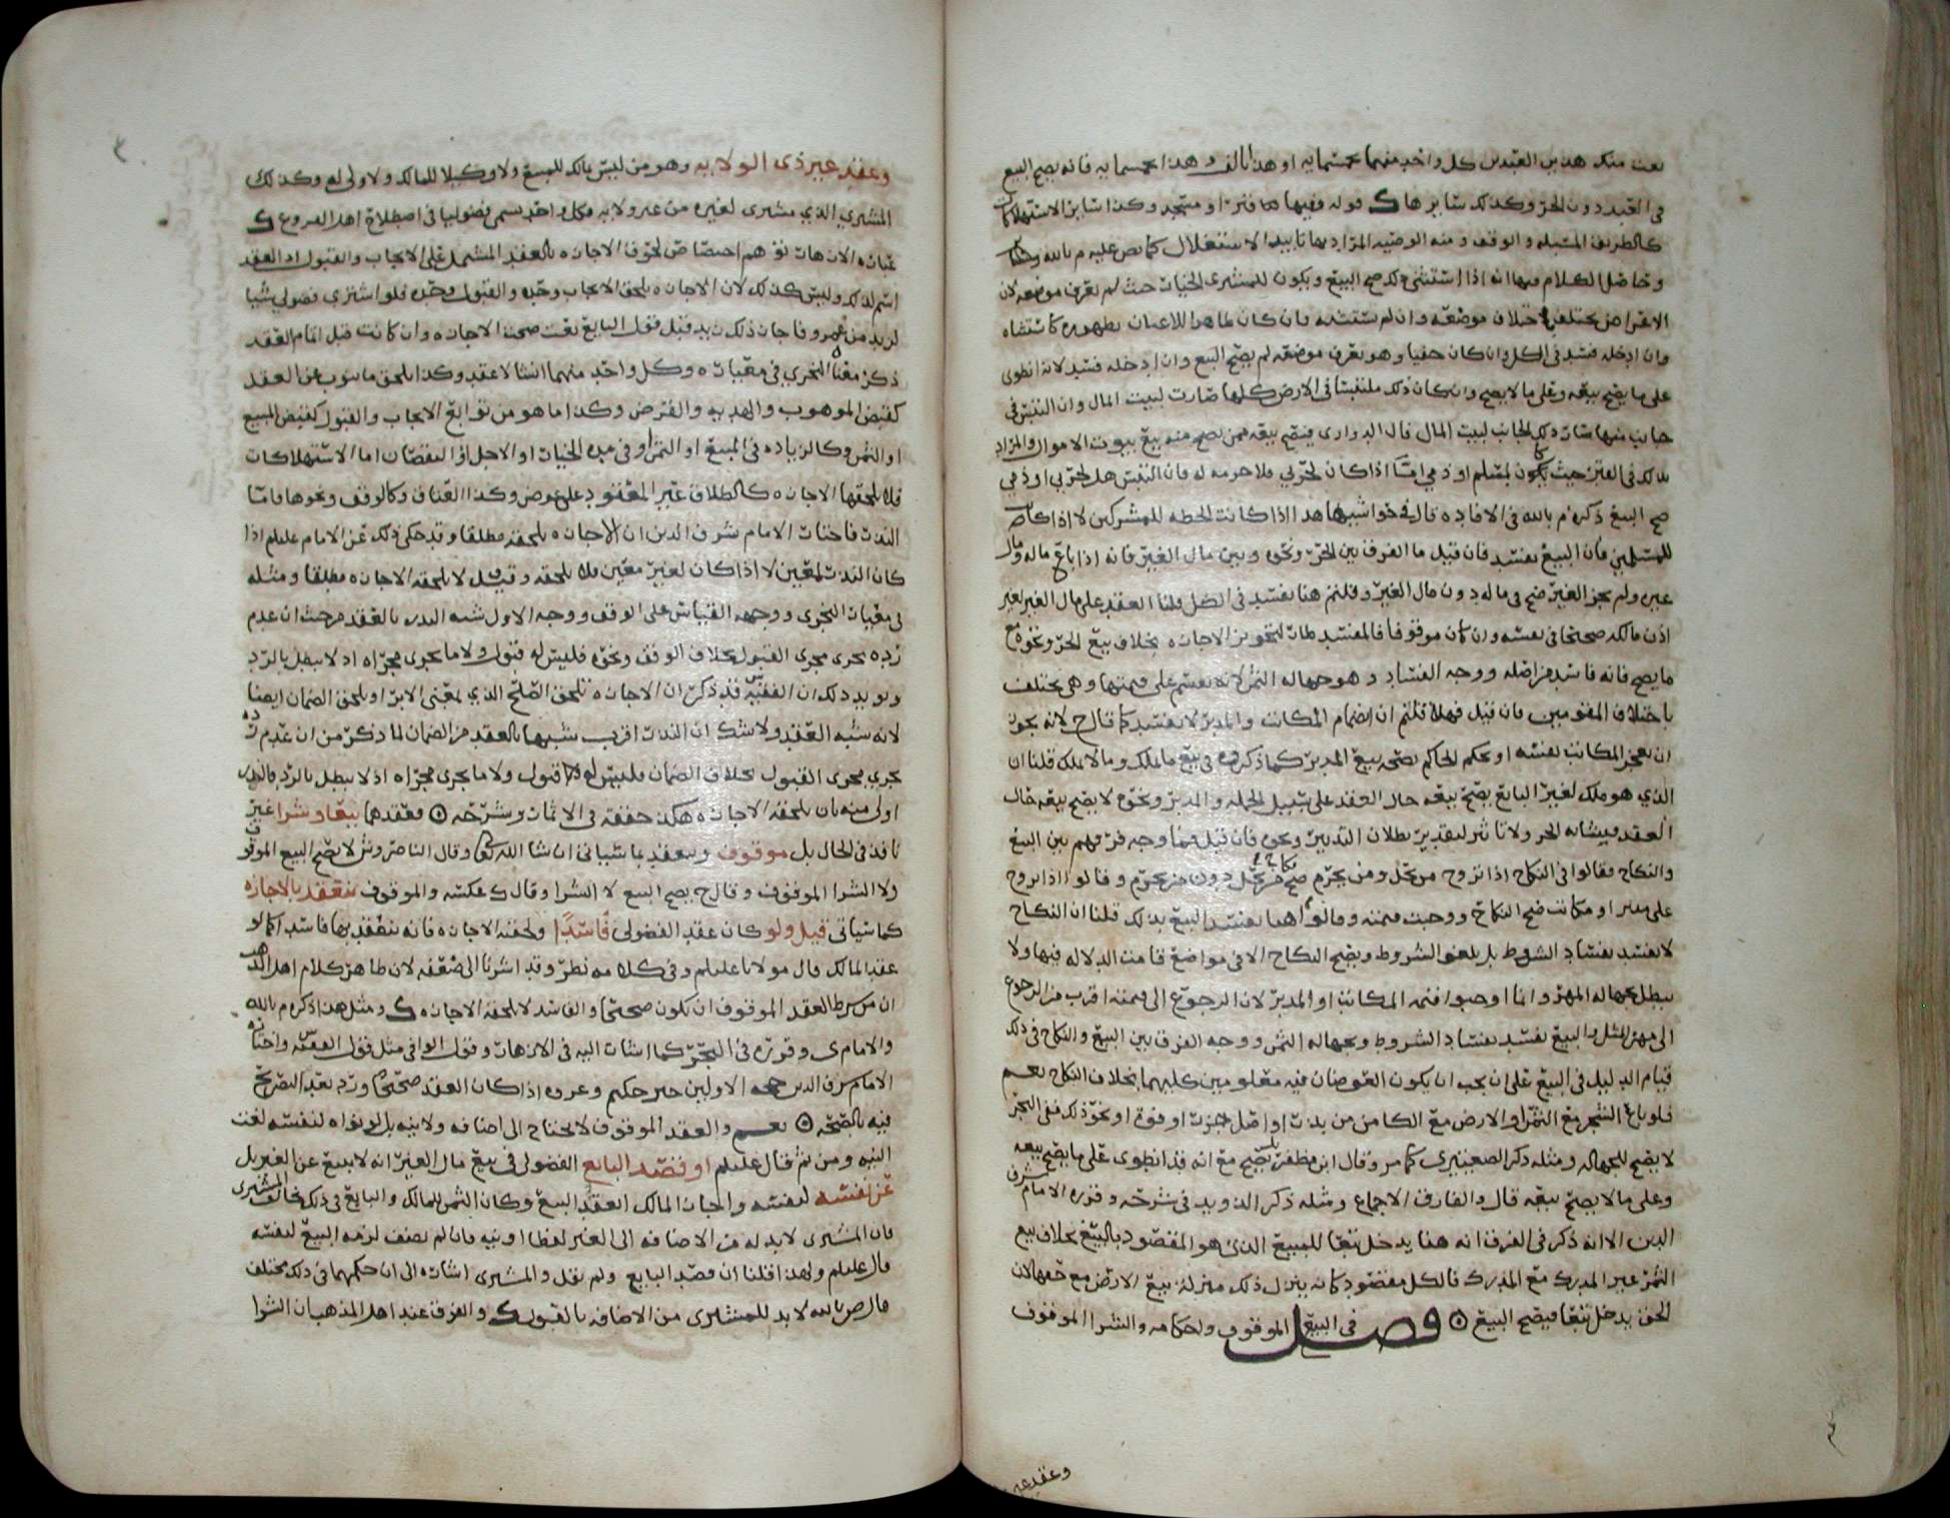 بعت منك هذين العبدين كل واحد منهما بخمسمايه او هذا بالف وهذا بخمسمايه فانه يصح البيع
في العبد دون الحر وكذلك سايرها ك قوله وفيها او مسجد وكذا ساير الاستهلاكات
كالطريق المسبله والوقف ومنه الوصيه المراد بها تابيد الاستغلال كما نص عليه م بالله
وحاصل الكلام فيها انه اذا استثنى ذلك صح البيع ويكون للمشترى الخيار حيث لم يعرف موضعه لان
الاغراض تختلف باختلاف موضعه وان لم يستثنه فان كان ظاهرا للاعيان فظهوره كاستثناه
وان ادخله فسد في الكل وان كان خفيا وهو يعرف موضعه لم يصح البيع وان ادخله فسد لانه انطوى
على ما يصح بيعه وعلى ما لا يصح وان كان ذلك ملتبسا في الارض كلها صارت لبيت المال وان التبس في
جانب منها صار ذلك الجانب لبيت المال قال الدوارى فيصح بيعه ممن يصح منه بيع بيوت الاموال والمراد
بذلك في القبر حيث يكون لمسلم او ذمي امـا اذا كان لحربي فلا حرمه له فان التبس هل لحربي او ذمي
صح البيع ذكره م بالله في الافاده قال في حواشيها هذا اذا كانت الخطه للمشركين لا اذا كانت
للمسلمين فان البيع يفسد فان قيل ما الفرق بين الحر ونحوه وبين مال الغير فانه اذا باع ماله ومال
غيره ولم يجز الغير صح في ماله دون مال الغير وقلتم هنا يفسد في الكل قلنا العقد على مال الغير بغير
اذن مالكه صحيح في نفسه وان كان موقوفا فالمفسد طار لتجويز الاجازه بخلاف بيع الحر ونحوه مع
ما يصح فانه فاسد من اصله ووجه الفساد هو جهاله الثمن لانه يقسم على قيمتها وهي تختلف
باختلاف المقومين فان قيل فهلا قلتم ان انضمام المكاتب والمدبر لا يفسد كما قال ح لانه يجوز
ان يعجز المكاتب نفسه او يحكم الحاكم بصحه بيع المدبر كما ذكروه في بيع ما يملك وما لا يملك قلنا ان
الذي هو ملك لغير البايع يصح بيعه حال العقد على سبيل الجمله والمدبر ونحوه لا يصح بيعه حال
العقد فيشابه الحر ولا تاثير لتقدير بطلان التدبير ونحوه فان قيل فما وجه فرقهم بين البيع
والنكاح فقالوا في النكاح اذا تزوج من يحل ومن يحرم صح نكاح من يحل دون من يحرم وقالوا اذا تزوج
على مدبر او مكاتب صح النكاح ووجبت قيمته وقالوا هنا يفسد البيع بذلك قلنا ان النكاح
لا يفسد بفساد الشروط بل يلغو الشروط ويصح النكاح الا في مواضع قامت الدلاله فيها ولا
يبطل بجهاله المهر وانما اوجبوا قيمه المكاتب او المدبر لان الرجوع الى قيمته اقرب من الرجوع
الى مهر المثل والبيع يفسد بفساد الشروط وبجهاله الثمن ووجه الفرق بين البيع والنكاح في ذلك
قيام الدليل في البيع على ان يجب ان يكون العوضان فيه معلومين كليهما بخلاف النكاح نعـم
فلو باع الشجر مع الثمر او الارض مع الكامن من بذر او اصل جزر او فوه او نحو ذلك ففي البحر
لا يصح للجهاله ومثله ذكر الصعيتيري كما مر وقال ابن مظفر بل يصح مع انه قد انطوى على ما يصح بيعه
وعلى ما لا يصح بيعه قال والفارق الاجماع ومثله ذكر الذويد في شرحه وقرره الامام شرف
الدين الا انه ذكر في الفرق انه هنا يدخل تبعا للمبيع الذي هو المقصود بالبيع بخلاف بيع
الثمر غير المدرك مع المدرك فالكل مقصود كانه ينزل ذلك منزلة بيع الارض مع حقها لان
الحق يدخل تبعا فيصح البيع ⊙ فصـل في البيع الموقوف واحكامه والشرا الموقوف
وعقد غير
وعقد غير ذى الولايه وهو من ليس مالك للمبيع ولا وكيلا للمالك ولا ولى له وكذلك
المشتري الذي يشترى لغيره من غير ولايه فكل واحد يسمى فضوليا في اصطلاح اهل الفروع ك
عبارة الازهار توهم اختصاص لحوق الاجازه بالعقد المشتمل على الايجاب والقبول اذ العقد
اسم لذلك وليس كذلك لان الاجازه تلحق الايجاب وحده والقبول وحده فلو اشترى فضولي شيا
لزيد من عمرو فاجاز ذلك زيد قبل قول البايع بعت صحت الاجازه وان كانت قبل تمام العقد
ذكر معناه النجري في معياره وكل واحد منهما انشا لا عقد وكذا يلحق ما ينوب عن العقد
كقبض الموهوب والهديه والقرض وكذا ما هو من توابع الايجاب والقبول كقبض المبيع
او الثمن وكالزياده في المبيع او الثمن او في مده الخيار او الاجل او النقصان اما الاستهلاكات
فلا تلحقها الاجازه كالطلاق غير المعقود على عوض وكذا العتاق وكالوقف ونحوها فاما
النذر فاختار الامام شرف الدين ان الاجازه تلحقه مطلقا وقد حكي ذلك عن الامام عليلم اذا
كان النذر لمعين لا اذا كان لغير معين فلا تلحقه وقيـل لا تلحقه الاجازه مطلقا ومثله
في معيار النجرى ووجهه القياس على الوقف ووجه الاول شبه النذر بالعقد من حيث ان عدم
رده يجرى مجرى القبول بخلاف الوقف ونحوه فليس له قبول ولا ما يجرى مجراه اذ لا يبطل بالرد
ويويد ذلك ان الفقيه س قد ذكر ان الاجازه تلحق الصلح الذي بمعنى الابرا وتلحق الضمان ايضا
لانه شبه العقد ولا شك ان النذر اقرب شبها بالعقد من الضمان لما ذكر من ان عدم رده
يجري مجرى القبول بخلاف الضمان فليس له قبول ولا ما يجرى مجراه اذ لا يبطل بالرد فالنذر
اولى منه بان تلحقه الاجازه هكذا حققه في الاثمار وشرحه ⊙ فعقدهما بيعا وشرا غير
نافذ في الحال بل موقوف وينعقد بما سياتي ان شا الله تعالى وقال الناصر وش لا يصح البيع الموقوف
ولا الشرا الموقوف وقال ح يصح البيع لا الشرا وقال ك عكسه والموقوف ينعقد بالاجازه
كما سياتى قيل ولو كان عقد الفضولى فاسدا ولحقته الاجازه فانه ينعقد بها فاسدا كما لو
عقد المالك قال مولانا عليلم وفي كلامه نظر وقد اشرنا الى ضعفه لان ظاهر كلام اهل المذهب
ان من شرط العقد الموقوف ان يكون صحيحا والفاسد لا تلحقه الاجازه ك ومثل هذا ذكره م بالله
والامام ى وقرره في البحر كما اشار اليه في الازهار وقول الوافي مثل قول الفقيه س واختاره
الامام شرف الدين حجه الاولين خبر حكيم وعروه اذ كان العقد صحيحا ورد بعد التصريح
فيه بالصحه ⊙ نعـم والعقد الموقوف لا يحتاج الى اضافه ولا نيه بل لو نواه لنفسه لغت
النيه ومن ثم قال عليلم او قصد البايع الفضولى في بيع مال الغير انه لا يبيع عن الغير بل
عن نفسه لنفسه واجاز المالك انعقد البيع وكان الثمن للمالك والبايع في ذلك يخالف المشترى
فان المشترى لا بد له من الاضافه الى الغير لفظا او نيه فان لم يضف لزمه البيع لنفسه
قال عليلم ولهذا قلنا ان قصد البايع ولم نقل والمشترى اشاره الى ان حكمهما في ذلك مختلف
قال ص بالله لا بد للمشترى من الاضافه بالقبول ك والفرق عند اهل المذهب ان الشرا